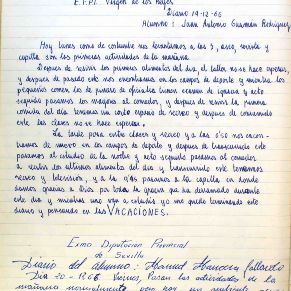 E.F.P.I. Virgen de los Reyes
Diario 19-12-66
Alumno: Juan Antonio Guzmán Rodríguez
Hoy lunes como de costumbre nos levantamos a las 8, aseo,
capilla son las primeras actividades de la mañana.
Después de servir los primeros alimentos del día, el taller no se hace esperar,
y después de pasado este nos encontramos en los campos de deporte y mientras los
pequeños comen los de de oficialía tienen examen de ignacia y acto
seguido pasamos los mayores al comedor, y después de servir la primera
comida del día tenemos un corto espacio de recreo y después de comenzado
este las clases no se hace esperar,
La tarde pasa entre clases y recreo y a las 6'30 nos encon-
tramos de nuevo en los campos de deporte y después de transcurrido este
pasamos al estudio de la noche y acto seguido pasamos al comedor
a recibir los últimos alimentos del día y transcurrido este tenemos
recreo y televisión, y a la 10'30 pasamos a la capilla en donde
damos gracias a Dios por todas la gracia que ha derramado durante
este día y mientras uno a acostarse yo me quedo terminando este
diario y pensando en las VACACIONES.
Exma. Diputacion Provincial
de Sevilla
Diario del alumno: Manuel
Dia 20-12-66 Pasan las actividades de la
mañana normalmente pero hay un ambiente